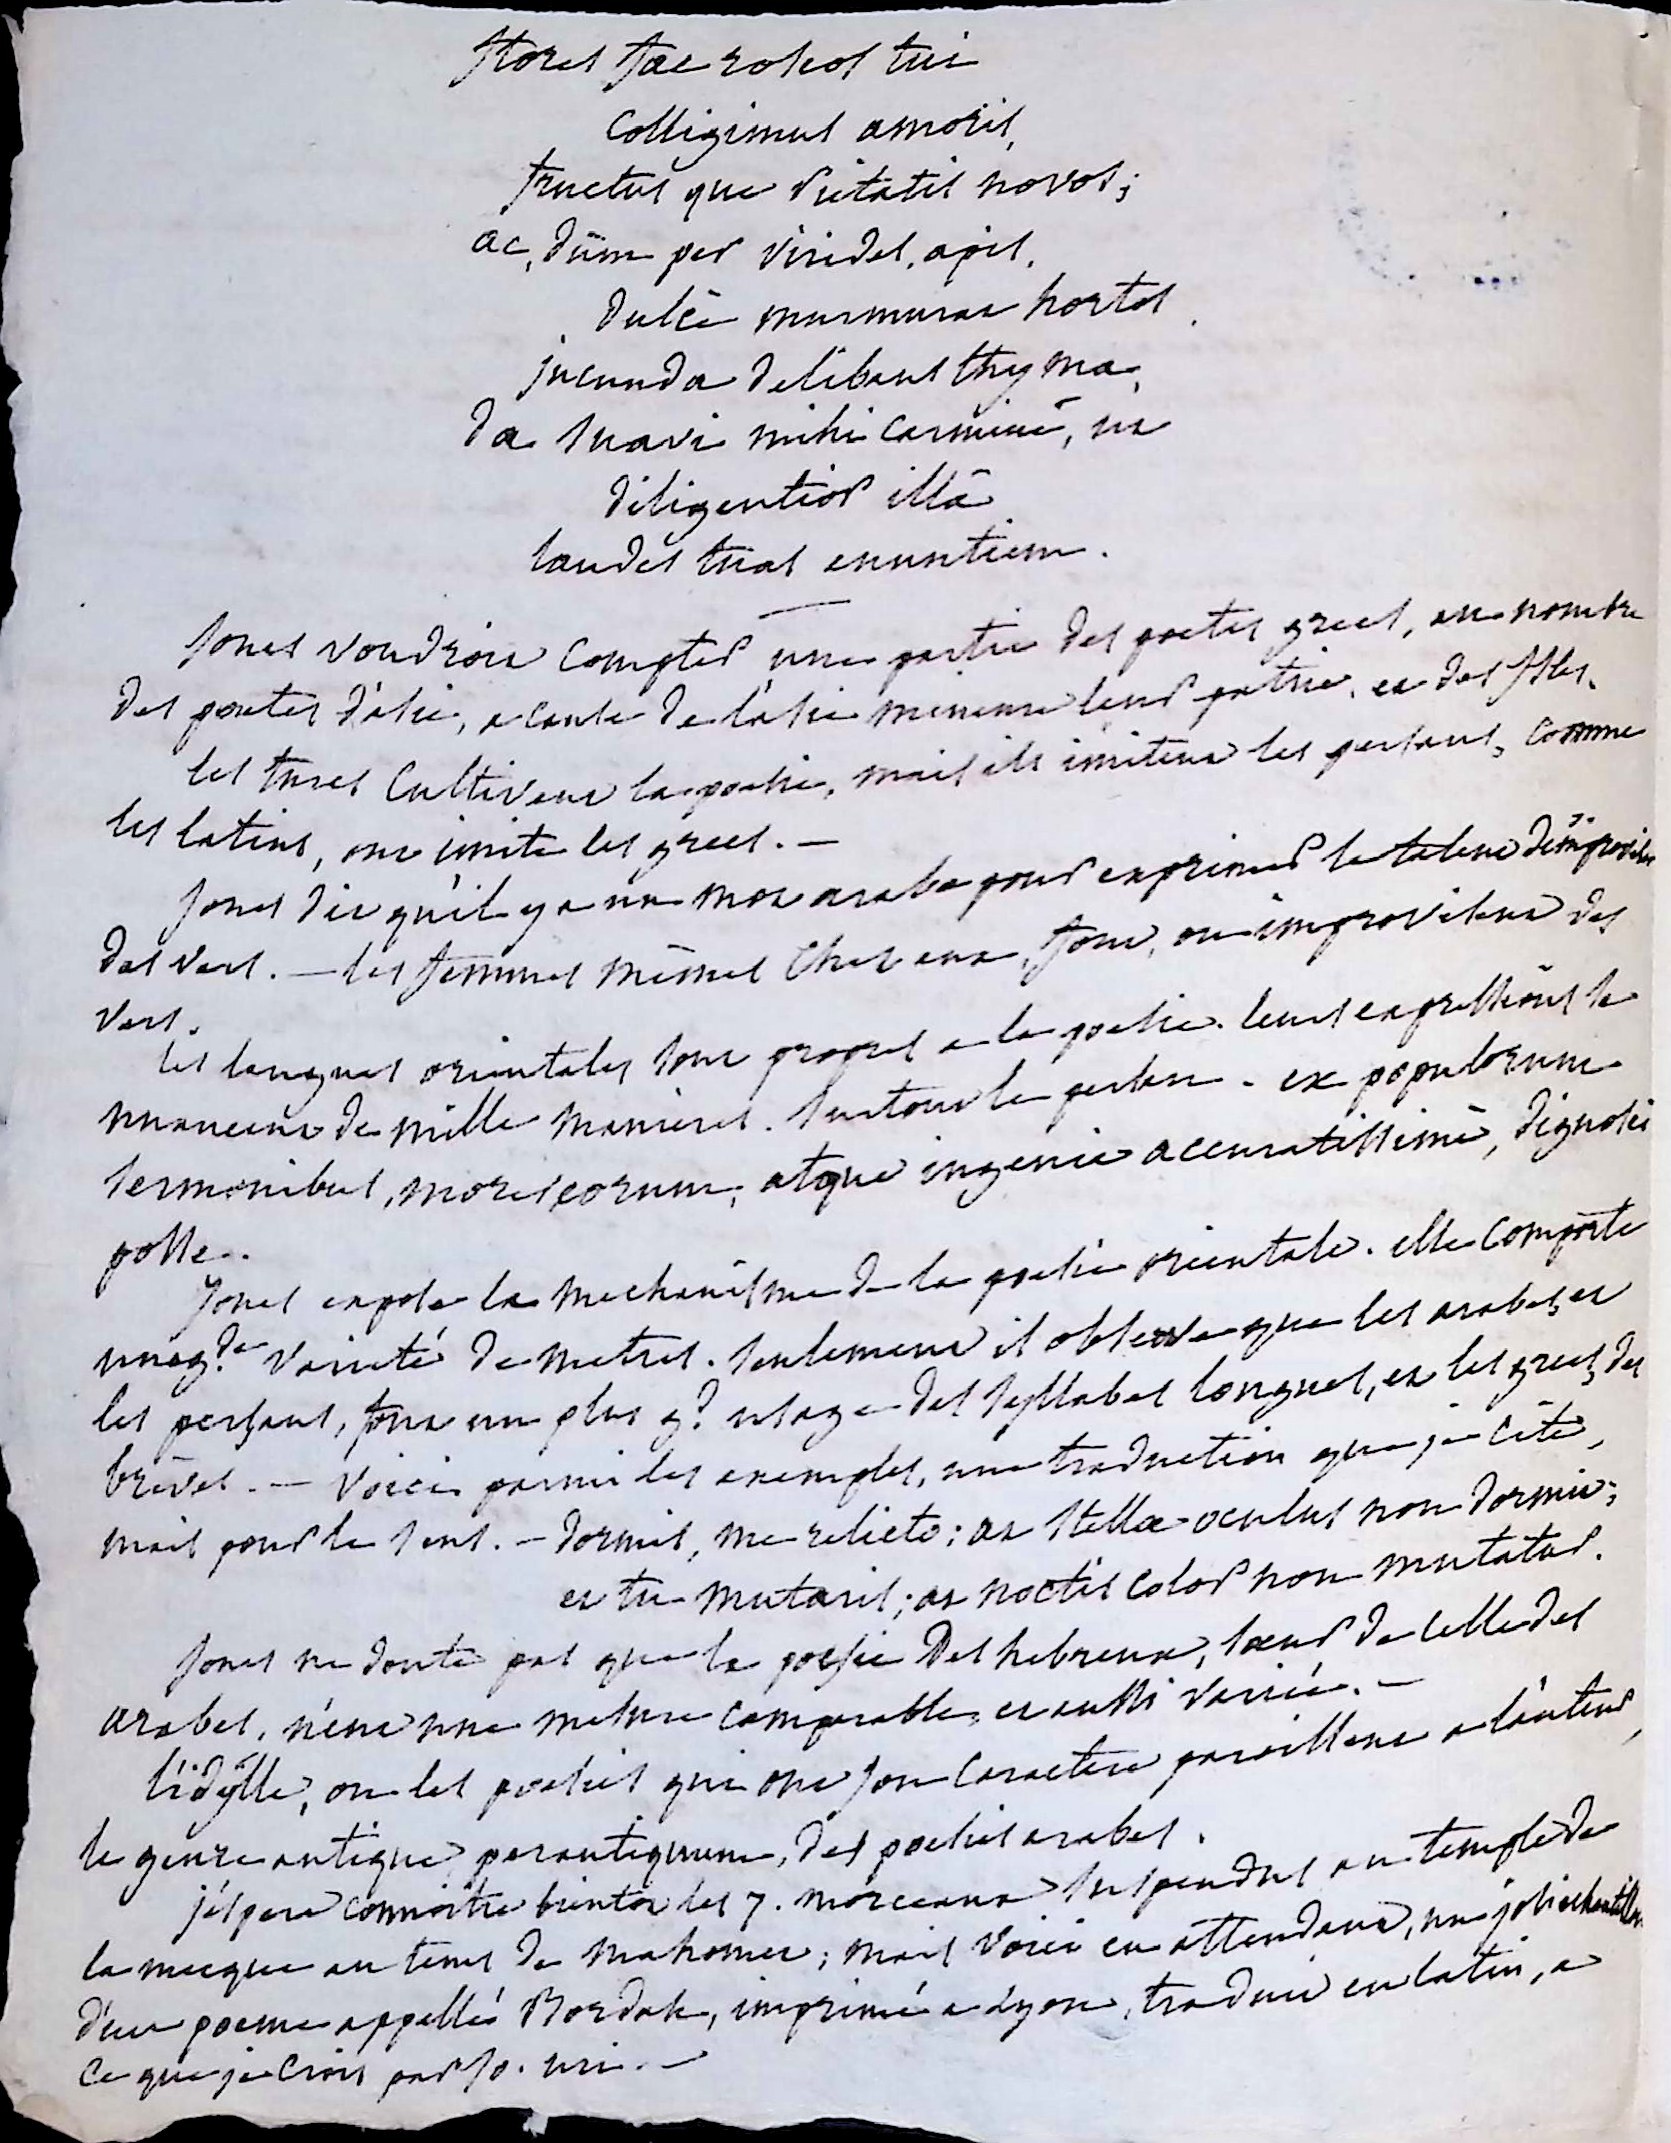 flores fac roseos tui
colligimus amoris,
fructus que pietatis novos;
ac, dum per virides, apis,
dulcè murmurat hortos
jucunda delibans thyma,
da suavi mihi carmine, ut
diligentior illâ
laudes tuas enuntiem.
Jones voudroit compter une partie des poetes grecs, au nombre
des poetes d'asie, a cause de l'asie mineure leur patrie, et des isles.
les turcs cultivent la poesie, mais ils imitent les persans, comme
les latins, ont imité les grecs. —
Jones dit qu'il y a un mot arabe pour exprimer le talent d'improviser
des vers. — les femmes mêmes chez eux, font, ou improvisent des
vers.
les langues orientales sont propres a la poesie. leurs expressions se
nuancent de mille manieres. surtout le persan. ex populorum
sermonibus, mores eorum, atque ingenia accuratissimè, dignosci
posse.
Jones expose le mechanisme de la poesie orientale. elle comporte
une gde varieté de metres. seulement il observe que les arabes, et
les persans, font un plus gd usage des syllabes longues, et les grecs, des
brèves. — voici parmi les exemples, une traduction que je cite,
mais pour le sens. — dormis, me relicto; at stellæ oculus non dormit;
et tu mutaris; at noctis color non mutatur.
Jones ne doute pas que la poesie des hebreux, soeur de celle des
arabes, n'eut une mesure comparable, et aussi variée. —
l'idylle, ou les poesies qui ont son caractere paroissent a l'auteur,
le genre antique, perantiquum, des poesies arabes.
j'espere connoitre bientot les 7. morceaux suspendus au temple de
la mecque au tems de mahomet; mais voici en attendant, un joli echantillon
d'un poeme appellé Bordah, imprimé a Lyon, traduit en latin, a
ce que je crois par Jo. uri. —